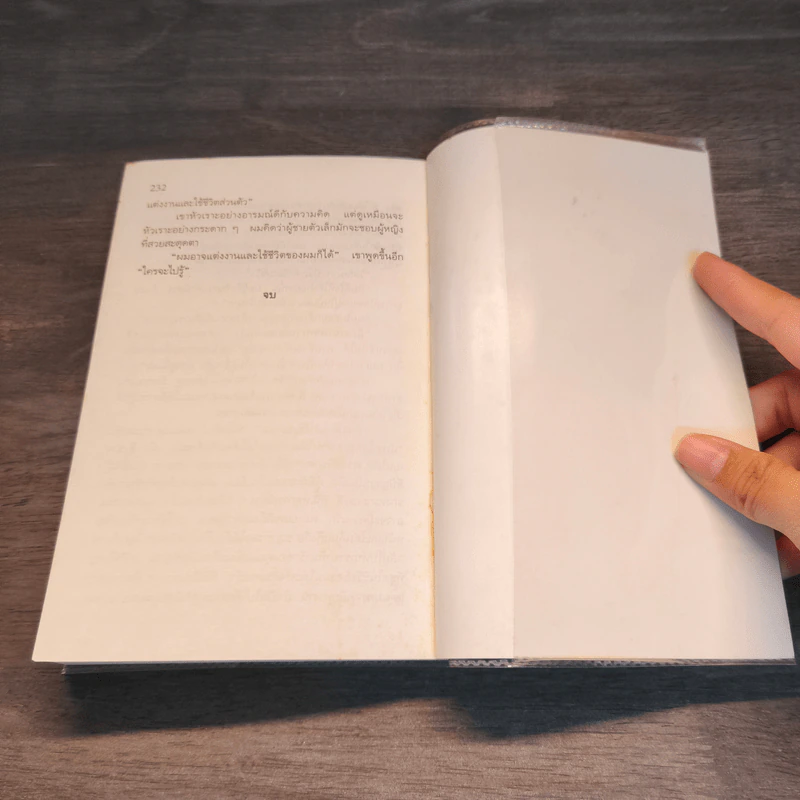 232
แต่งงานและใช้ชีวิตส่วนตัว"
เขาหัวเราะอย่างอารมณ์ดีกับความคิด แต่ดูเหมือนจะ
หัวเราะอย่างกระดาก ๆ ผมคิดว่าผู้ชายตัวเล็กมักจะชอบผู้หญิง
ที่สวยสะดุดตา
"ผมอาจแต่งงานและใช้ชีวิตของผมก็ได้" เขาพูดขึ้นอีก
"ใครจะไปรู้"
จบ